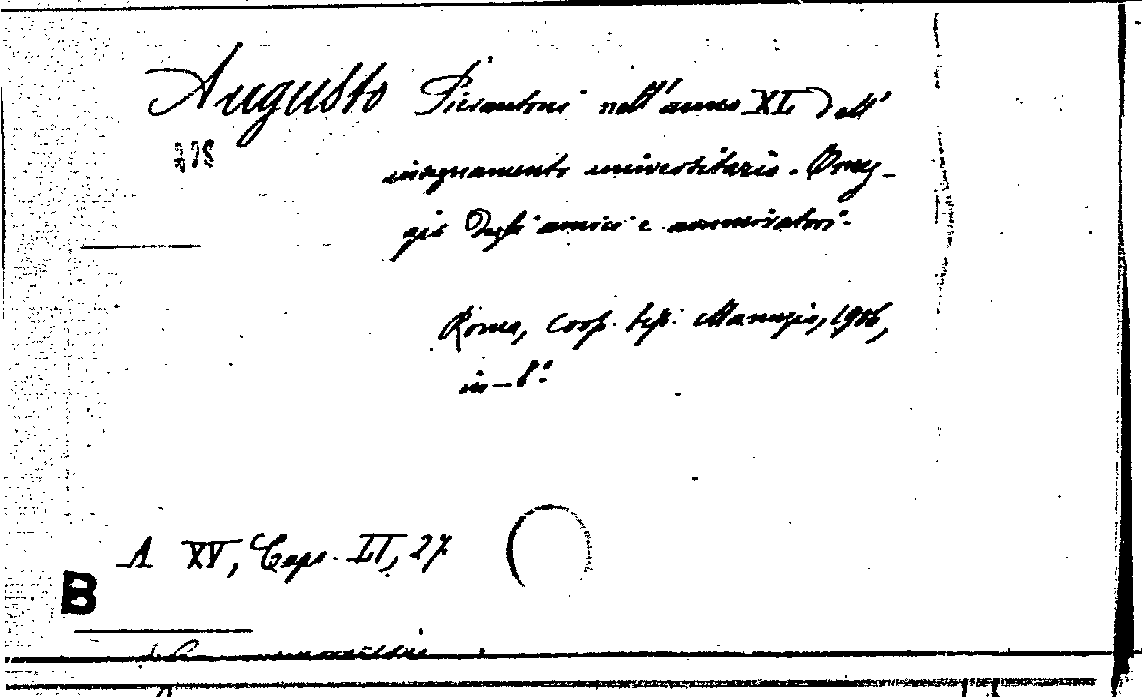 Augusto Pierantoni nell'anno XL dell'
insegnamento universitario. Omag-
gio degli amici e ammiratori.
Roma, Coop. tip. Manuzio, 1906,
in-8°
A XV, Caps. II, 27
B